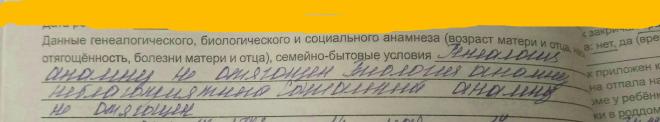 Данные генеалогического, биологического и социального анамнеза (возраст матери и отца,
отягощённость, болезни матери и отца), семейно-бытовые условия Генеалогич
анамнез не отягощен биология анамнез
неблагоприятный социальный анамнез
не отягощен
к закрич
а: нет, да (вре
к приложен к
на отпала на
оме у ребён
ки в роддом